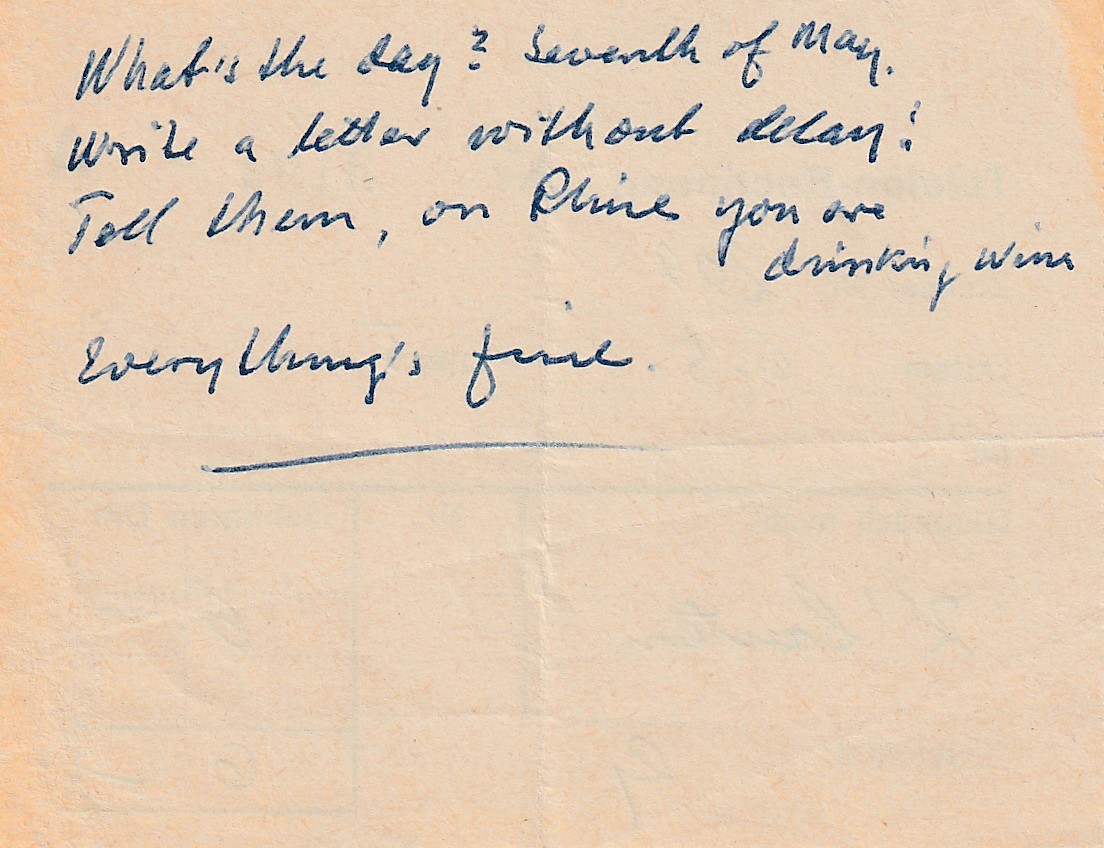 What's the day? Seventh of May.
Write a letter without delay!
Tell them, on Rhine you are
drinking wine
Everything's fine.